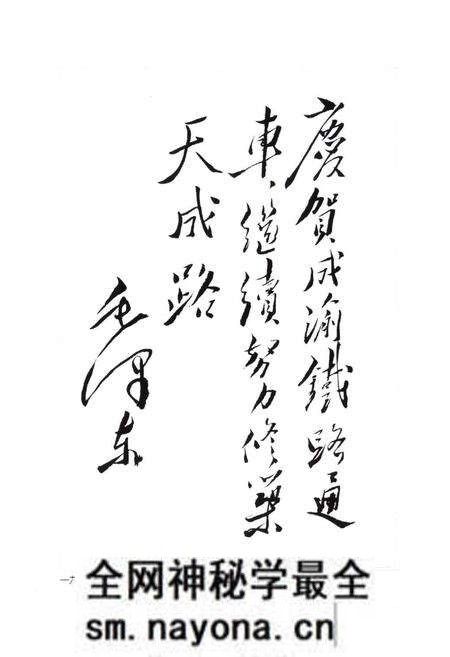 慶賀成渝鐵路通
車、繼續努力修築
天成路
毛澤东
一7
全网神秘学最全
sm.nayona.cn